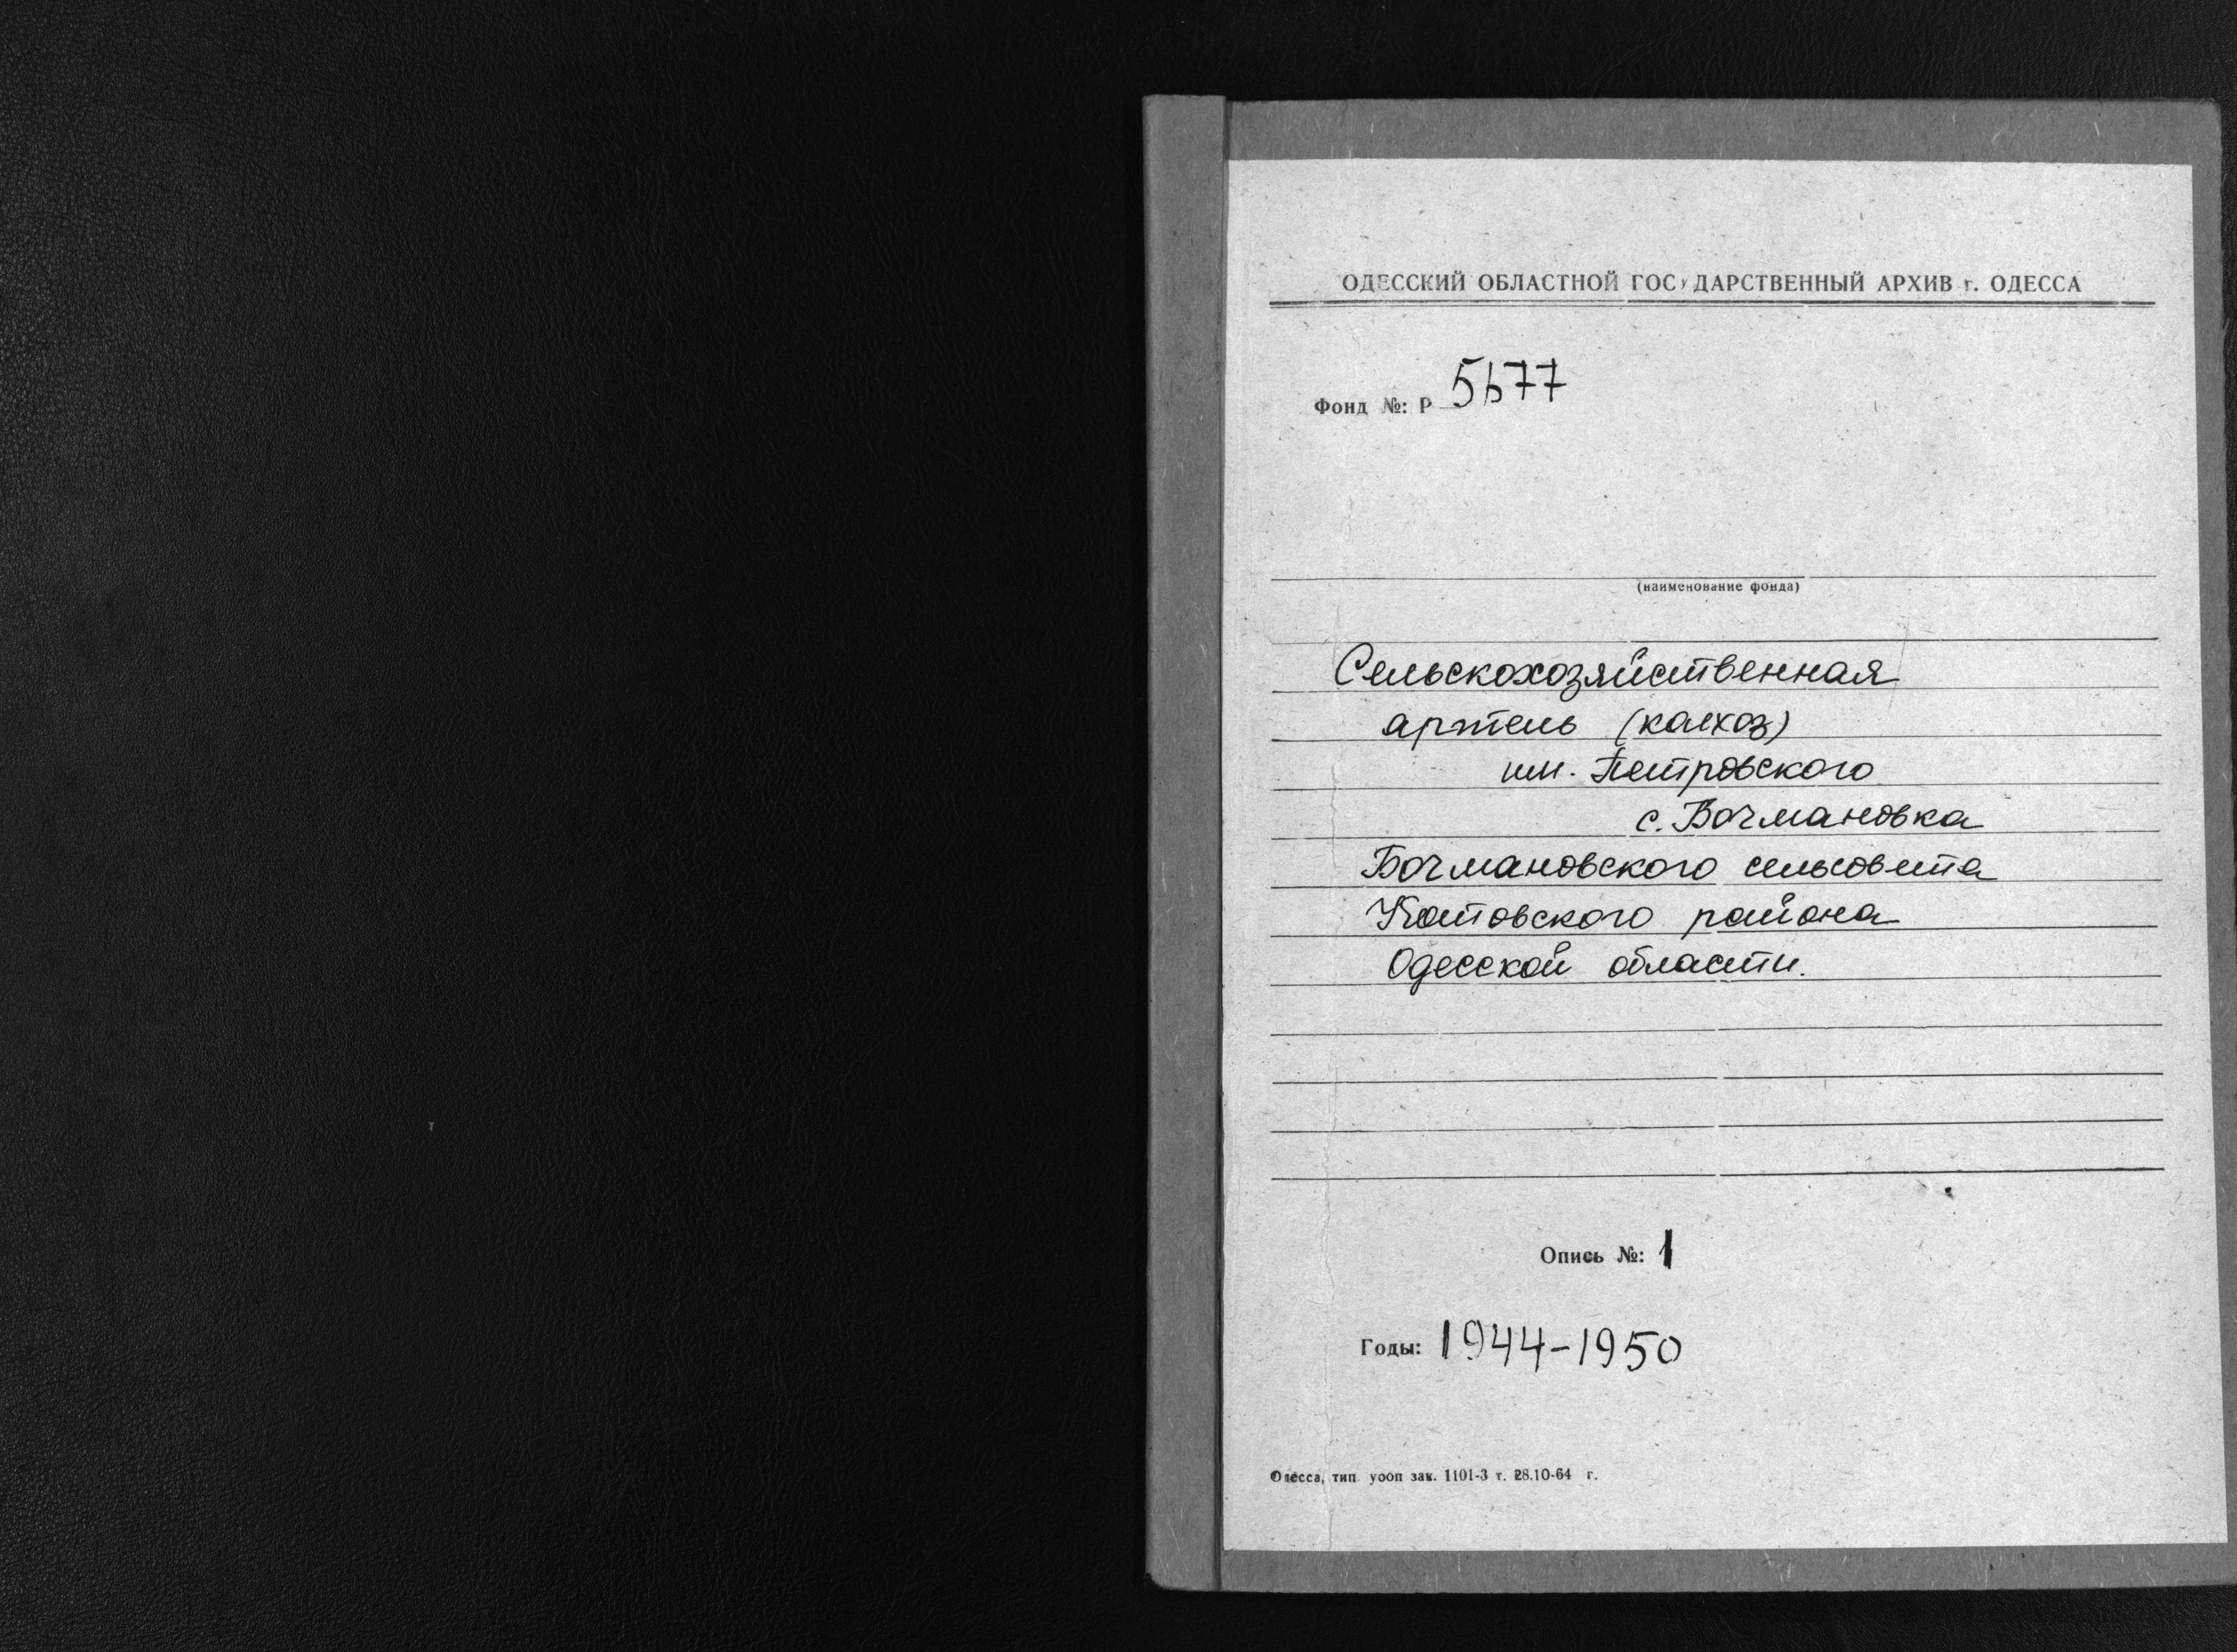 ОДЕССКИЙ ОБЛАСТНОЙ ГОСУДАРСТВЕННЫЙ АРХИВ г. ОДЕССА
Фонд №: Р 5677
(наименование фонда)
Сельскохозяйственная
артель (колхоз)
им. Петровского
с. Бочмановка
Бочмановского сельсовета
Котовского района
Одесской области.
Опись №: 1
Годы: 1944-1950
Одесса, тип. уооп зак. 1101-3 т. 28.10-64 г.